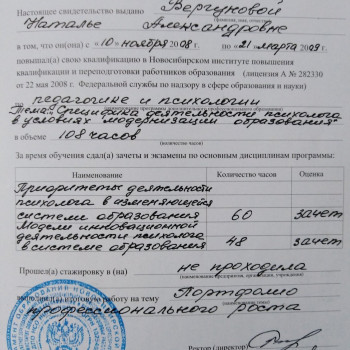 Настоящее свидетельство выдано Вергуновой
Наталье Александровне
в том, что он(она) с «10» ноября 2008 г. по «21» марта 2009 г.
повышал(а) свою квалификацию в Новосибирском институте повышения
квалификации и переподготовки работников образования (лицензия А № 282330
от 22 мая 2008 г. Федеральной службы по надзору в сфере образования и науки)
по педагогике и психологии
Тема: Специфика деятельности психолога
в условиях модернизации образования
в объеме 108 часов
(количество часов)
За время обучения сдал(а) зачеты и экзамены по основным дисциплинам программы:
Наименование Количество часов Оценка
Приоритеты деятельности
психолога в изменяющейся
системе образования 60 зачет
Модели инновационной
деятельности психолога
в системе образования 48 зачет
Прошел(а) стажировку в (на) не проходила
(наименование предприятия, организации, учреждения)
выполнил(а) итоговую работу на тему Портфолио
профессионального роста
Ректор (директор)